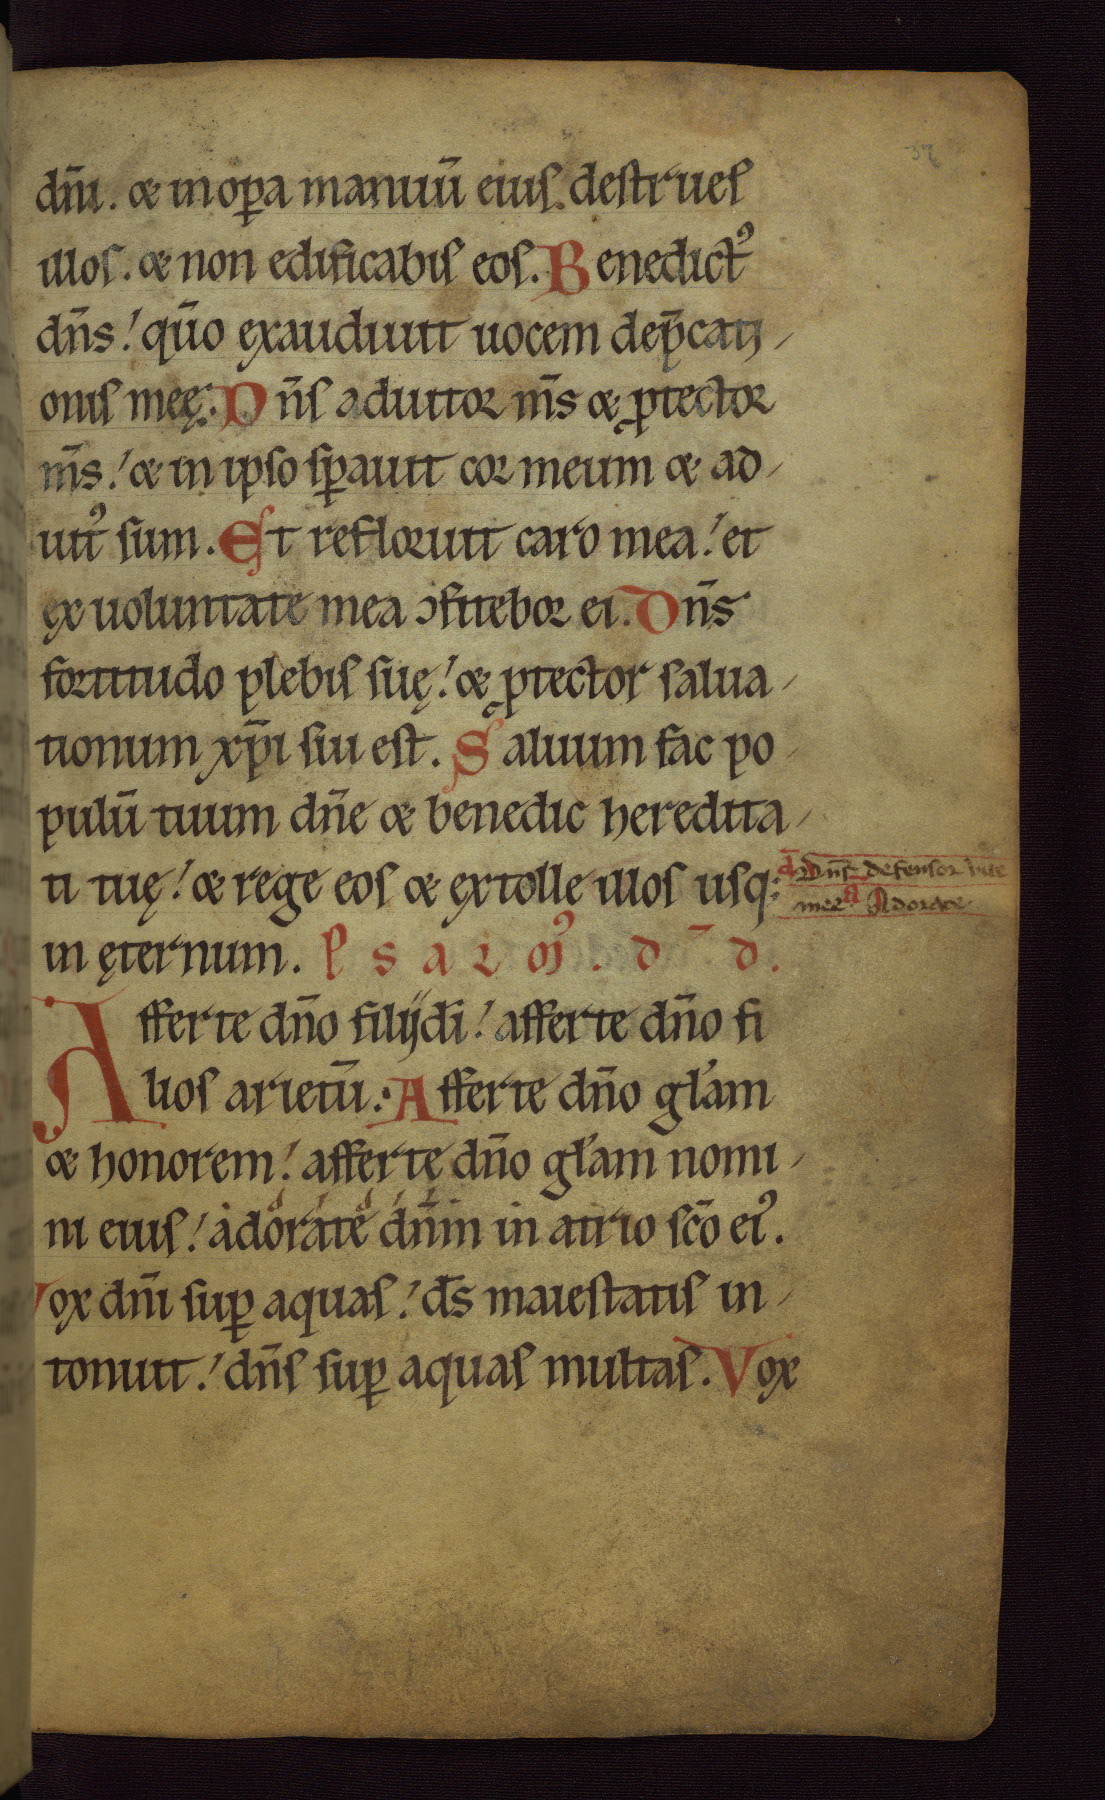 dñi. & in op̱a manuū eius. destrues
illos. & non edificabis eos. Benedictꝰ
dñs! qūo exaudiuit uocem dep̄cati
onis meę. Dñs adiutor m̄s & ꝓtector
m̄s! & in ipso sꝑauit cor meum & ad
iutꝰ sum. Et refloruit caro mea! et
ex uoluntate mea ↄfitebor ei. Dñs
fortitudo plebis suę! & ꝓtector salua
tionum xp̄i sui est. Saluum fac po
pulū tuum dñe & benedic heredita
ti tuę! & rege eos & extolle illos usq;
in ęternum. Psalmꝰ. d̄d.
Afferte dño filij di! afferte dño fi
lios arietū. Afferte dño gl'am
& honorem! afferte dño gl'am nomi
ni eius! adorate dñm in atrio sc̄o eiꝰ.
Vox dñi suꝑ aquas! d̄s maiestatis in
tonuit! dñs suꝑ aquas multas. Vox
Dñs defensor uite
mee a Adorate